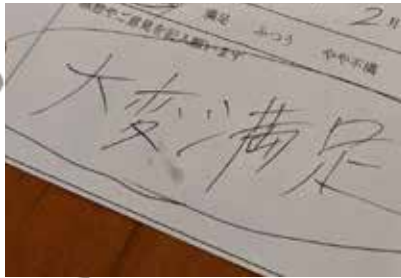 2月
満足 ふつう やや不満
感想やご意見を記入願います
大変満足